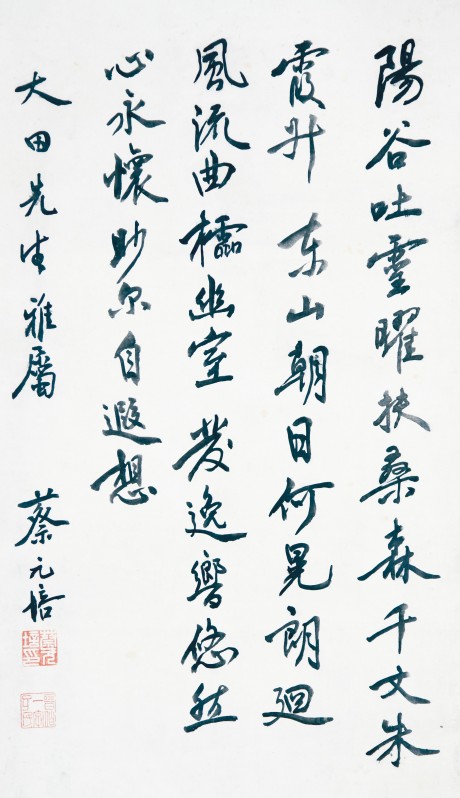 陽谷吐靈曜扶桑森千丈朱
霞升東山朝日何晃朗迴
風流曲櫺幽室發逸響悠然
心永懷眇尔自遐想
大田先生雅屬
蔡元培
蔡元培印